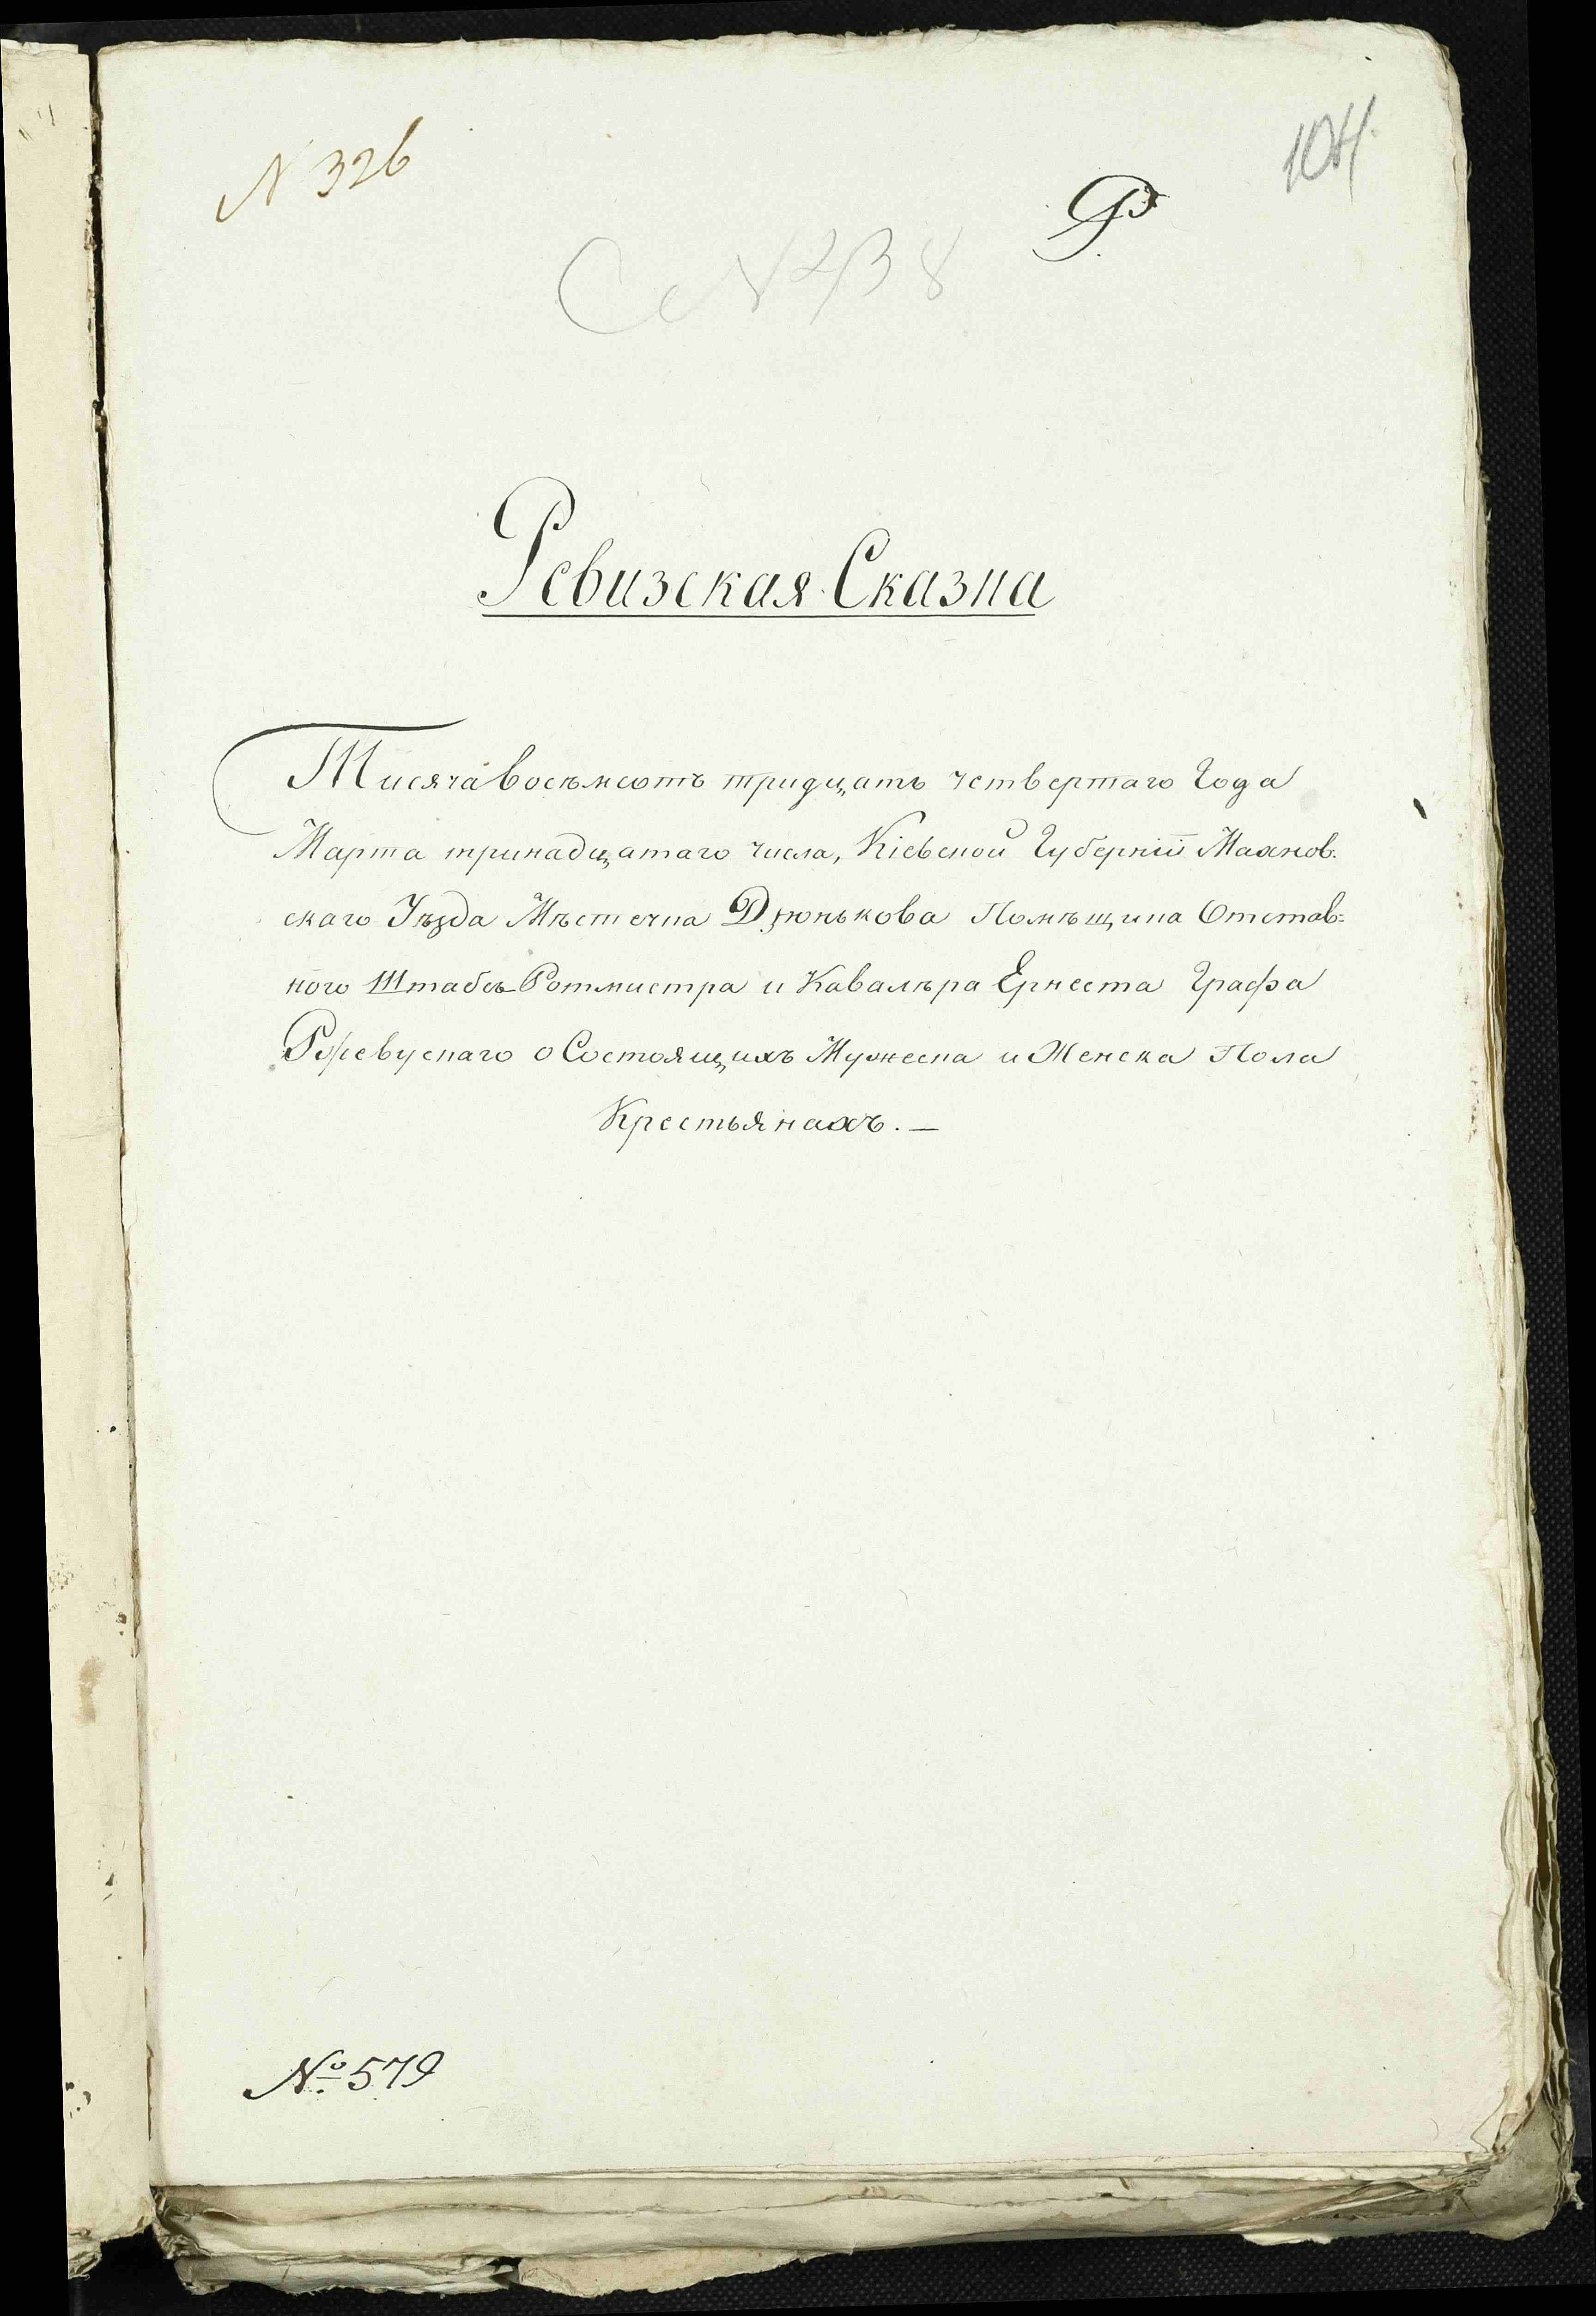 N 326
104
Р
Ревизская Сказка
Тисяча восѣмсотъ тридцать четвертаго Года
Марта тринадцатаго числа, Кіевской Губерніи Махнов-
скаго Уѣзда Мѣстечка Дзюнькова Помѣщика Отстав=
ного Штабсъ Ротмистра и Кавалѣра Ернеста Графа
Ржевускаго о Состоящихъ Мужеска и Женска Пола
Крестьянахъ. —
№ 579